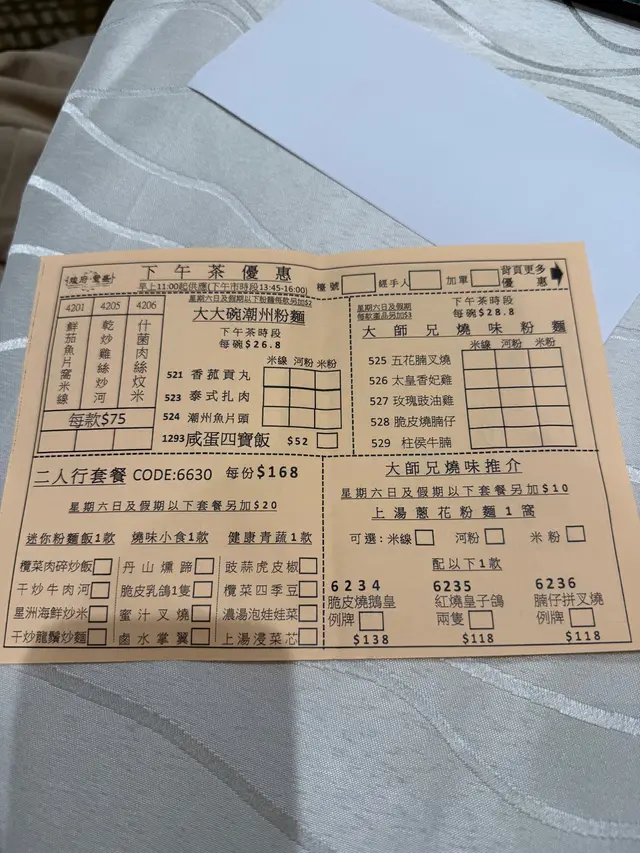 下午茶優惠
早上11:00起供應(下午市時段13:45-16:00)
檯號
經手人
加單
背頁更多
優惠
4201
鮮茄魚片窩米線
4205
乾炒雞絲炒河
4206
什菌肉絲炆米
每款$75
星期六日及假期以下粉麵每款另加$3
大大碗潮州粉麵
下午茶時段
每碗$26.8
米線 河粉 米粉
521 香菰貢丸
523 泰式扎肉
524 潮州魚片頭
1293 咸蛋四寶飯 $52
星期六日及假期
每款產品另加$2
下午茶時段
每碗$28.8
大師兄燒味粉麵
米線 河粉 米粉
525 五花腩叉燒
526 太皇香妃雞
527 玫瑰豉油雞
528 脆皮燒腩仔
529 柱侯牛腩
二人行套餐 CODE:6630 每份$168
星期六日及假期以下套餐另加$20
迷你粉麵飯1款 燒味小食1款 健康青蔬1款
欖菜肉碎炒飯 丹山燻蹄 豉蒜虎皮椒
干炒牛肉河 脆皮乳鴿1隻 欖菜四季豆
星洲海鮮炒米 蜜汁叉燒 濃湯泡娃娃菜
干炒龍鬚炒麵 鹵水掌翼 上湯浸菜芯
大師兄燒味推介
星期六日及假期以下套餐另加$10
上湯蔥花粉麵1窩
可選:米線 河粉 米粉
配以下1款
6234 6235 6236
脆皮燒鵝皇 紅燒皇子鴿 腩仔拼叉燒
例牌 兩隻 例牌
$138 $118 $118